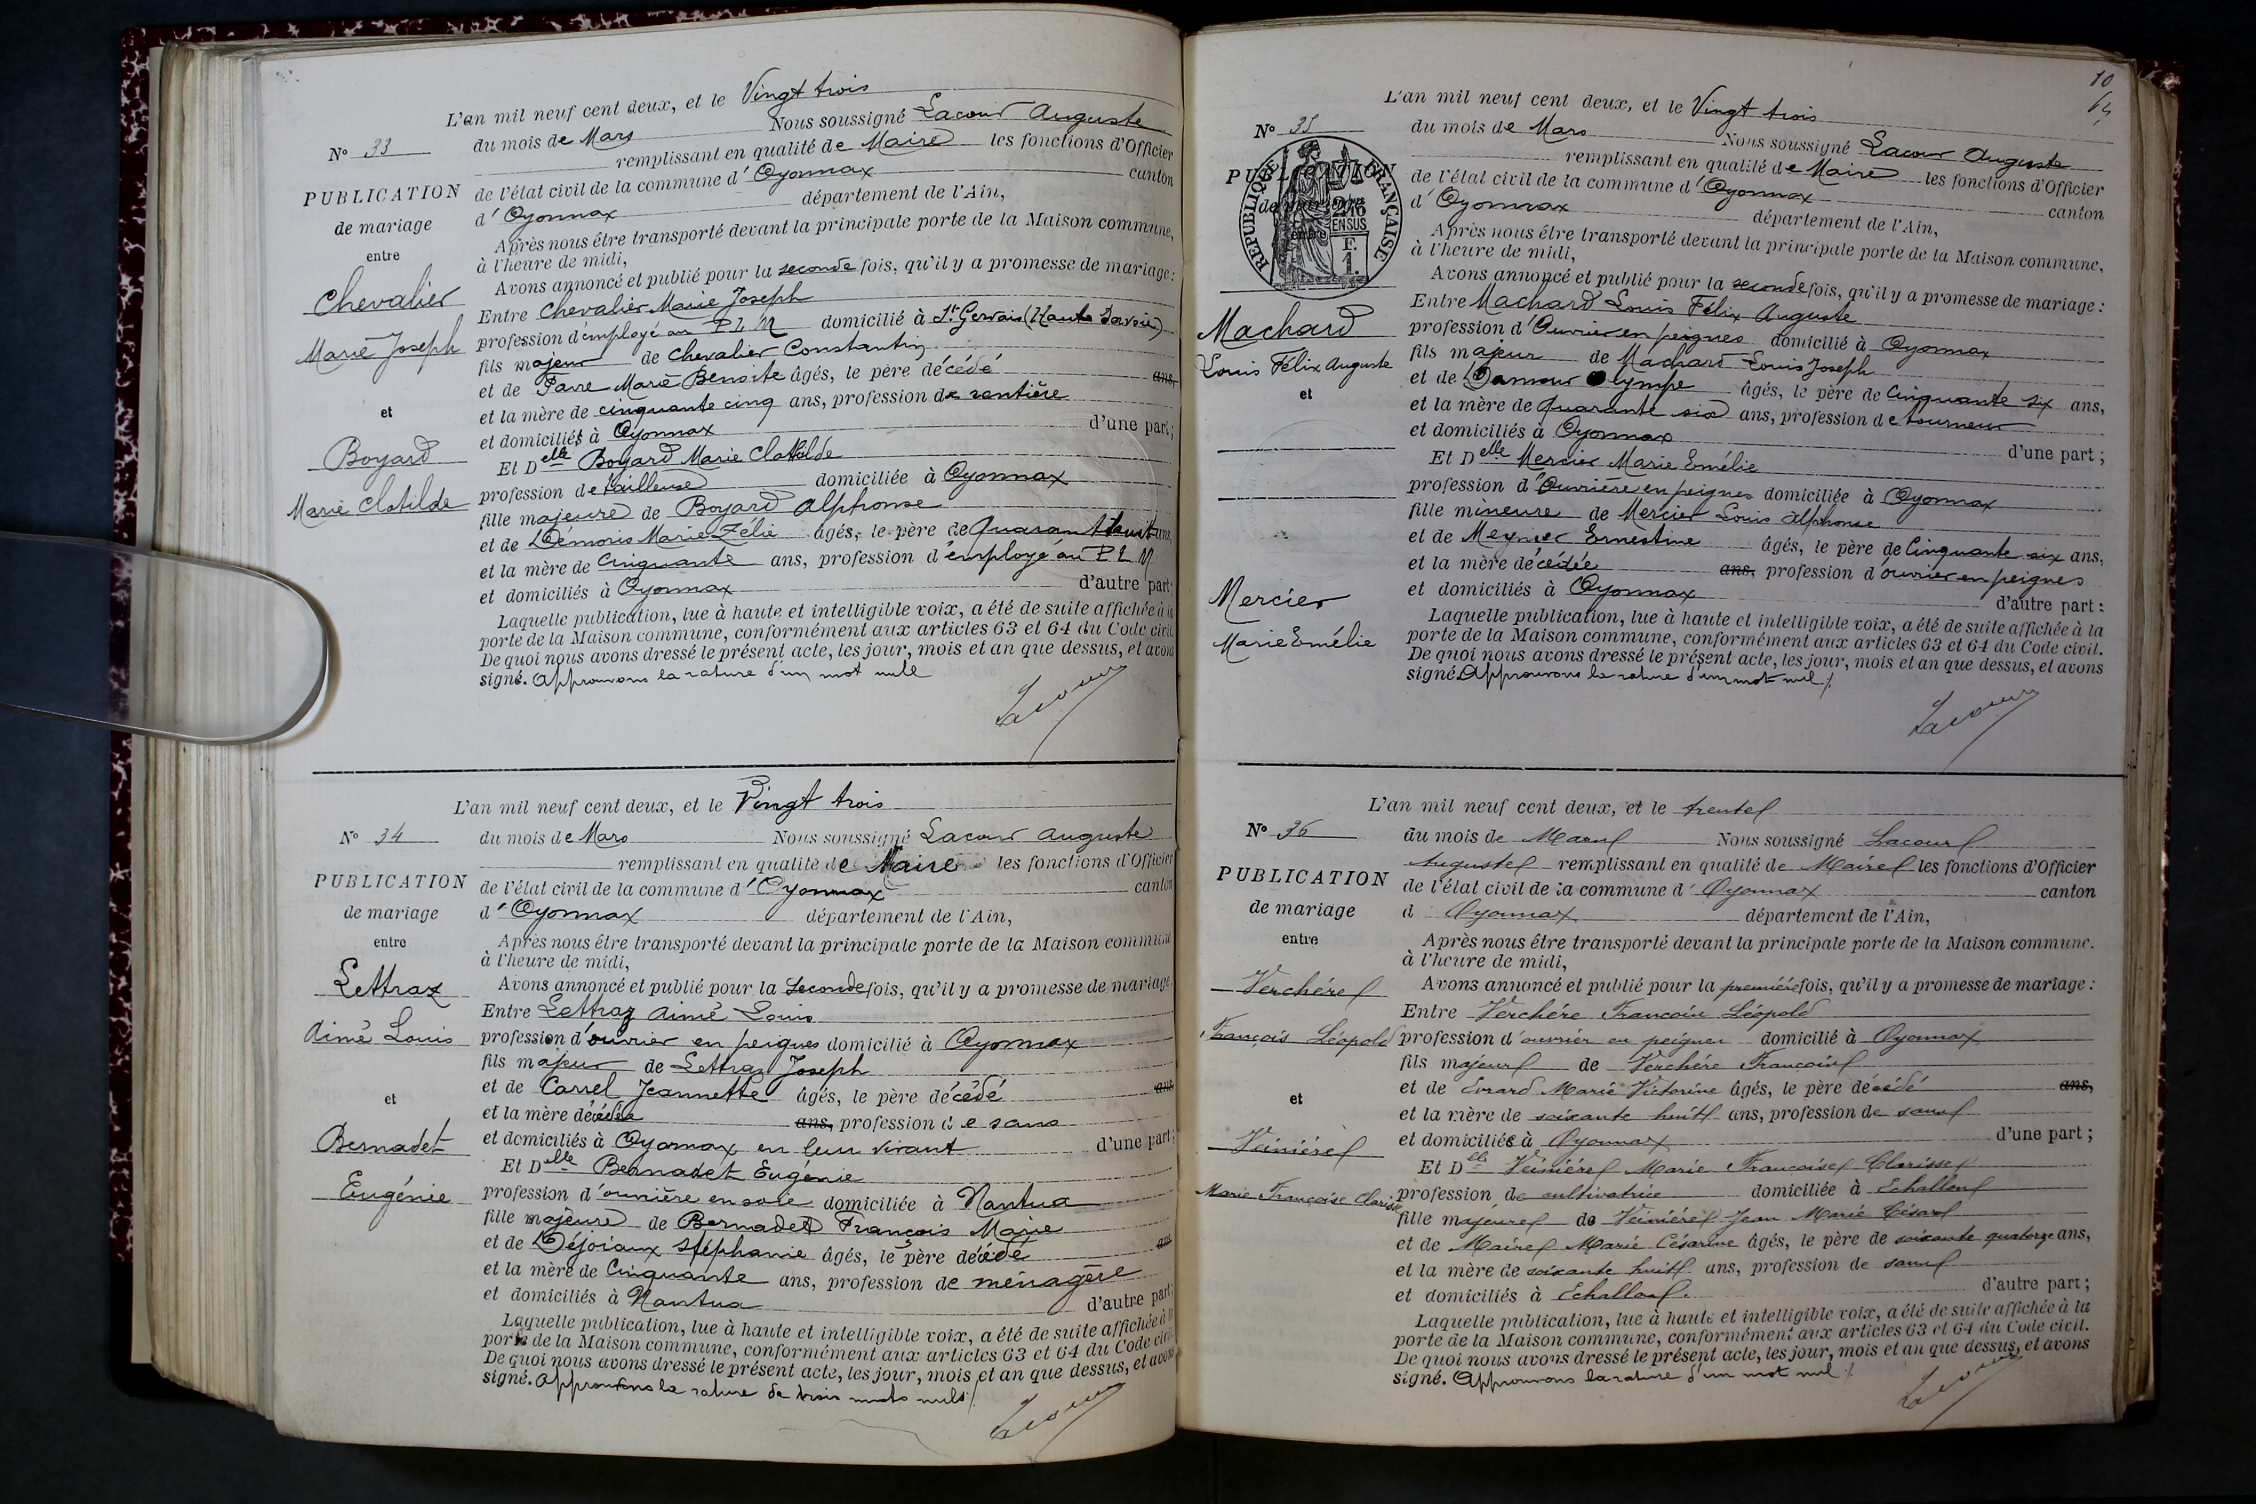 L'an mil neuf cent deux, et le Vingt trois
N° 33
du mois de Mars Nous soussigné Lacour Auguste
remplissant en qualité de Maire les fonctions d'Officier
PUBLICATION
de l'état civil de la commune d'Oyonnax canton
d'Oyonnax département de l'Ain,
de mariage
Après nous être transporté devant la principale porte de la Maison commune,
entre
à l'heure de midi,
Avons annoncé et publié pour la seconde fois, qu'il y a promesse de mariage:
Chevalier
Entre Chevalier Marie Joseph
Marie Joseph
profession d'employé au P L M domicilié à St Gervais (Haute Savoie)
fils majeur de Chevalier Constantin
et de Favre Marie Benoite âgés, le père décédé ans,
et
et la mère de cinquante cinq ans, profession de rentière
et domiciliés à Oyonnax d'une part;
Boyard
Et Delle Boyard Marie Clotilde
profession de tailleuse domiciliée à Oyonnax
Marie Clotilde
fille majeure de Boyard Alphonse
et de Démoris Marie Zélie âgés, le père de Quarante huit ans,
et la mère de Cinquante ans, profession d'employé au P L M
et domiciliés à Oyonnax d'autre part;
Laquelle publication, lue à haute et intelligible voix, a été de suite affichée à la
porte de la Maison commune, conformément aux articles 63 et 64 du Code civil.
De quoi nous avons dressé le présent acte, les jour, mois et an que dessus, et avons
signé. Approuvons la rature d'un mot nulle
Lacour
L'an mil neuf cent deux, et le Vingt trois
N° 34
du mois de Mars Nous soussigné Lacour Auguste
remplissant en qualité de Maire les fonctions d'Officier
PUBLICATION
de l'état civil de la commune d'Oyonnax canton
de mariage
d'Oyonnax département de l'Ain,
entre
Après nous être transporté devant la principale porte de la Maison commune
à l'heure de midi,
Lettraz
Avons annoncé et publié pour la Seconde fois, qu'il y a promesse de mariage
Entre Lettraz Aimé Louis
Aimé Louis
profession d'ouvrier en peignes domicilié à Oyonnax
fils majeur de Lettraz Joseph
et de Carrel Jeannette âgés, le père décédé ans
et
et la mère décédée ans, profession de sans
Bernadet
et domiciliés à Oyonnax en leur vivant d'une part;
Et Delle Bernadet Eugénie
Eugénie
profession d'ouvrière en soie domiciliée à Nantua
fille majeure de Bernadet François Marie
et de Déjoiaux Stéphanie âgés, le père décédé an
et la mère de Cinquante ans, profession de ménagère
et domiciliés à Nantua d'autre part;
Laquelle publication, lue à haute et intelligible voix, a été de suite affichée à la
porte de la Maison commune, conformément aux articles 63 et 64 du Code civil
De quoi nous avons dressé le présent acte, les jour, mois et an que dessus, et avons
signé. Approuvons la rature de trois mots nuls
Lacour
10
L'an mil neuf cent deux, et le Vingt trois
N° 35
du mois de Mars Nous soussigné Lacour Auguste
remplissant en qualité de Maire les fonctions d'Officier
PUBLICATION
RÉPUBLIQUE FRANÇAISE
2/10 EN SUS
F. 1.
de l'état civil de la commune d'Oyonnax canton
de mariage
d'Oyonnax département de l'Ain,
entre
Après nous être transporté devant la principale porte de la Maison commune,
à l'heure de midi,
Avons annoncé et publié pour la seconde fois, qu'il y a promesse de mariage:
Machard
Entre Machard Louis Félix Auguste
profession d'Ouvrier en peignes domicilié à Oyonnax
Louis Félix Auguste
fils majeur de Machard Louis Joseph
et
et de Damour Olympe âgés, le père de Cinquante six ans,
et la mère de Quarante six ans, profession de tourneur
et domiciliés à Oyonnax d'une part;
Et Delle Mercier Marie Emélie
profession d'Ouvrière en peignes domiciliée à Oyonnax
fille mineure de Mercier Louis Alphonse
et de Meynier Ernestine âgés, le père de Cinquante six ans,
et la mère décédée ans, profession d'ouvrier en peignes
Mercier
et domiciliés à Oyonnax d'autre part:
Laquelle publication, lue à haute et intelligible voix, a été de suite affichée à la
Marie Emélie
porte de la Maison commune, conformément aux articles 63 et 64 du Code civil.
De quoi nous avons dressé le présent acte, les jour, mois et an que dessus, et avons
signé. Approuvons la rature d'un mot nul
Lacour
L'an mil neuf cent deux, et le trente
N° 36
du mois de Mars Nous soussigné Lacour
Auguste remplissant en qualité de Maire les fonctions d'Officier
PUBLICATION
de l'état civil de la commune d'Oyonnax canton
de mariage
d Oyonnax département de l'Ain,
entre
Après nous être transporté devant la principale porte de la Maison commune.
à l'heure de midi,
Verchére
Avons annoncé et publié pour la première fois, qu'il y a promesse de mariage:
Entre Verchére François Léopold
François Léopold
profession d'ouvrier en peignes domicilié à Oyonnax
fils majeur de Verchére François
et de Evrard Marie Victorine âgés, le père décédé ans,
et
et la mère de soixante huit ans, profession de sans
Veiniére
et domiciliée à Oyonnax d'une part;
Et Delle Veiniére Marie Françoise Clarisse
Marie Françoise Clarisse
profession de cultivatrice domiciliée à Echallon
fille majeure de Veiniére Jean Marie César
et de Maire Marie Césarine âgés, le père de soixante quatorze ans,
et la mère de soixante huit ans, profession de sans
et domiciliés à Echallon. d'autre part;
Laquelle publication, lue à haute et intelligible voix, a été de suite affichée à la
porte de la Maison commune, conformément aux articles 63 et 64 du Code civil.
De quoi nous avons dressé le présent acte, les jour, mois et an que dessus, et avons
signé. Approuvons la rature d'un mot nul
Lacour